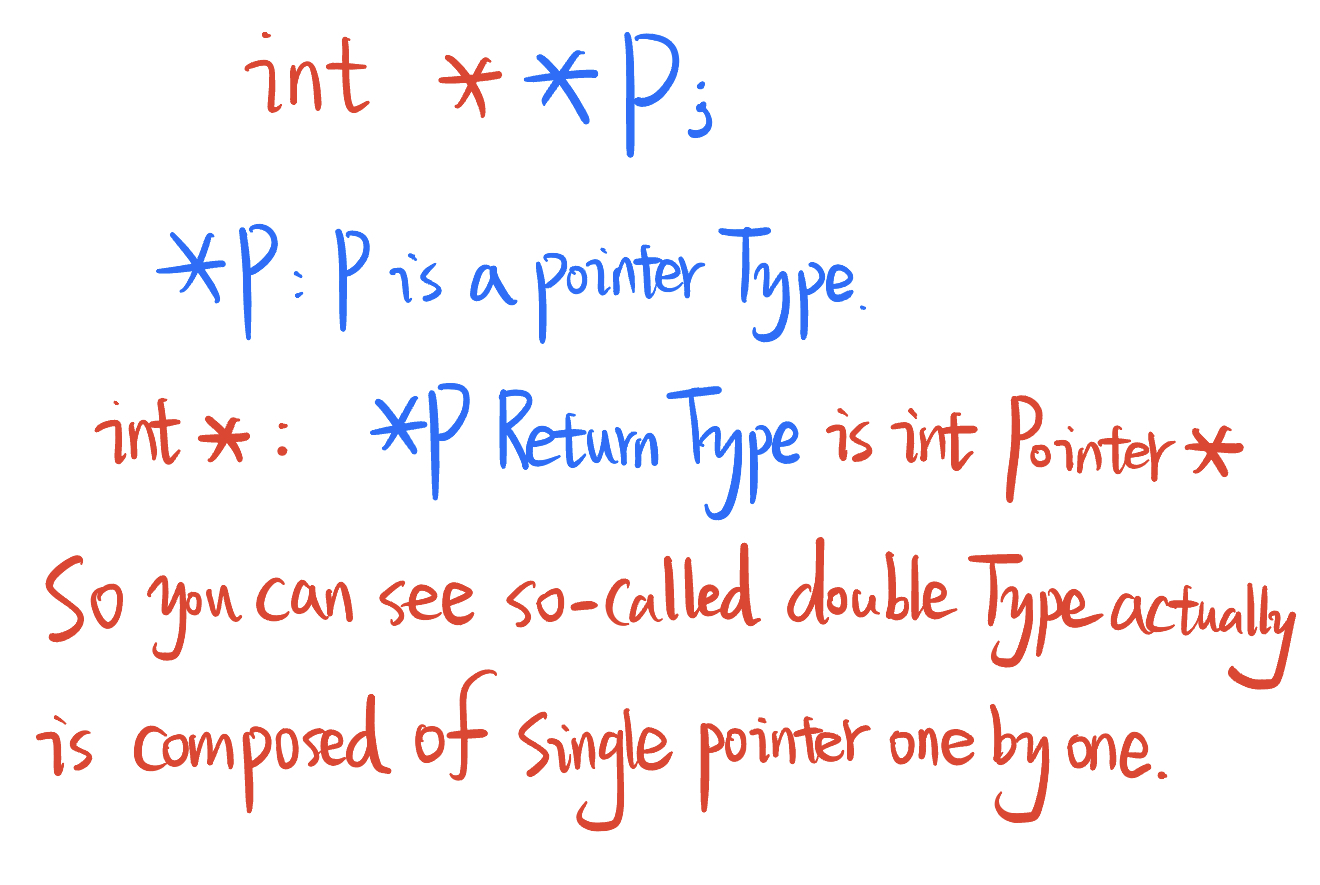 int **p;
*p: p is a pointer Type.
int *: *p Return Type is int Pointer *
So you can see so-called double Type actually
is composed of single pointer one by one.